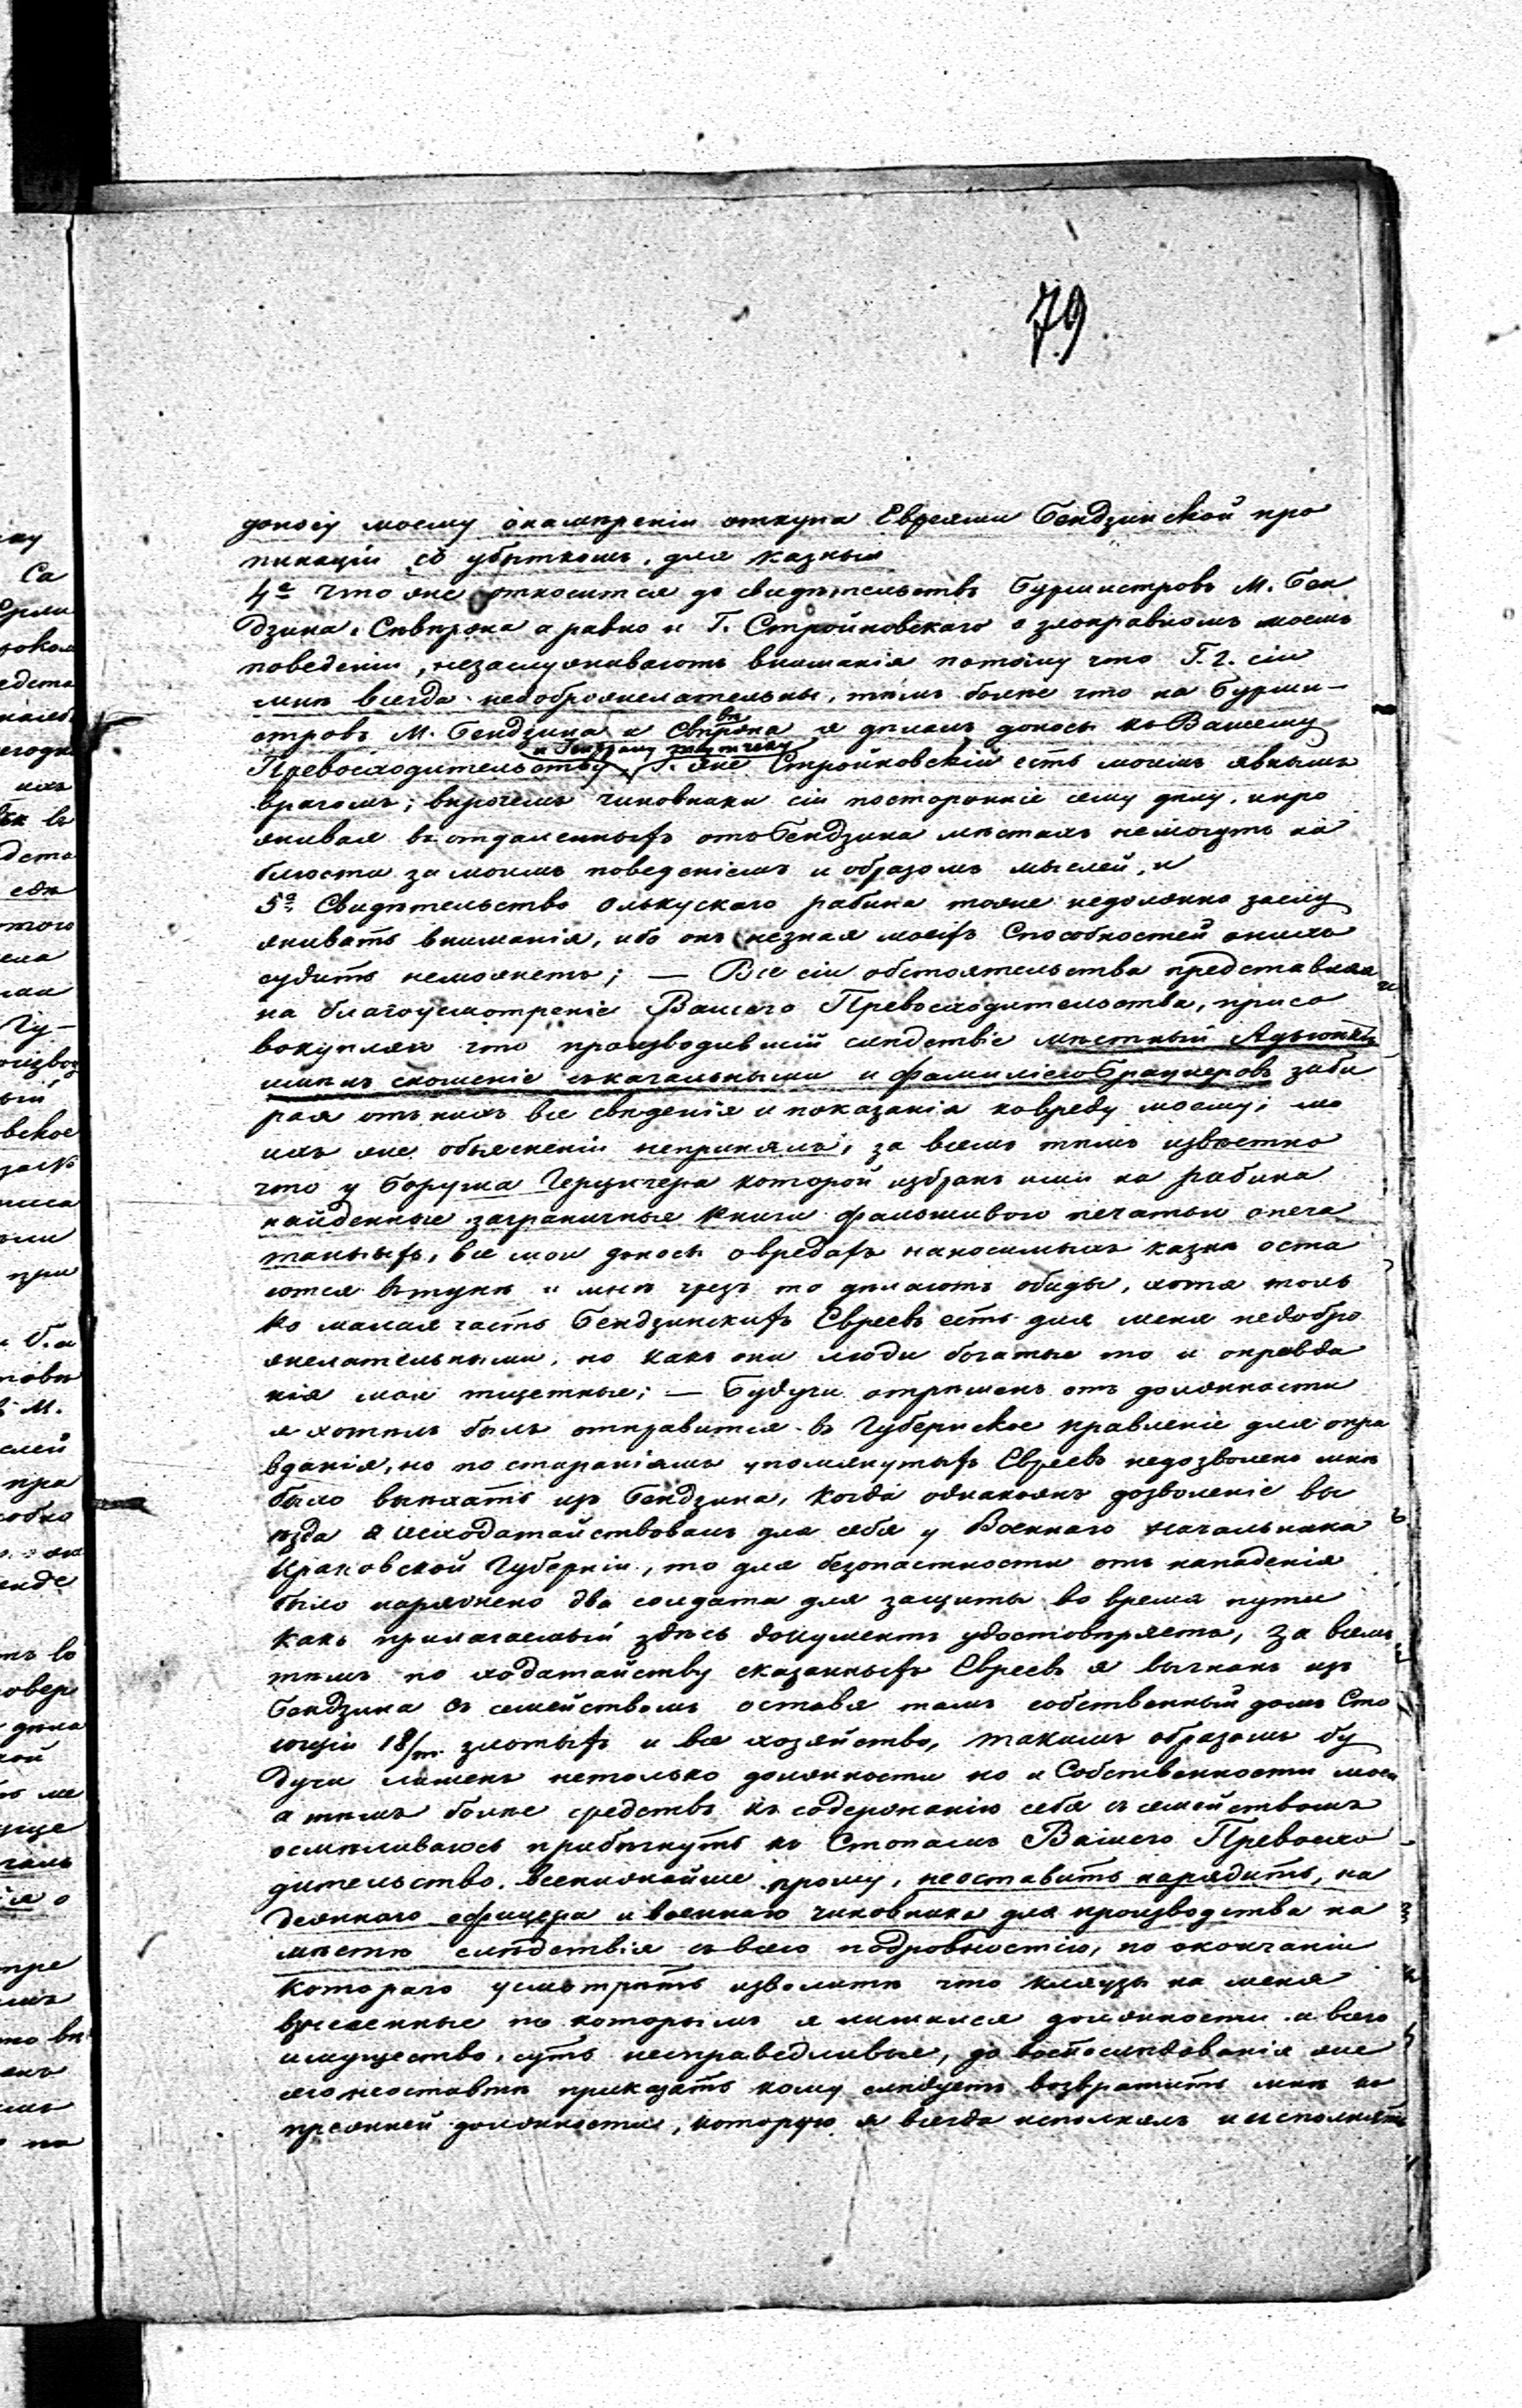 79
доносу моему о намѣреніи откупа Евреями Бендзинской про
пинаціи съ убыткомъ для казны
4е Что же относится до свидѣтельствъ Бурмистровъ М. Бен
дзина, Сѣвѣржа а равно и Г. Стройновскаго о злонравномъ моемъ
поведеніи, незаслуживаютъ вниманія потому что Г.г. сіи
мнѣ всегда недоброжелательны, тѣмъ болѣе что на Бурми-
стровъ М. Бендзина и Сѣвѣржа я дѣлалъ доносы къ Вашему
Превосходительству, Г. же Стройновскій есть моимъ явнымъ
врагомъ; впрочемъ чиновники сіи посторонніе сему дѣлу, и про
живая въ отдаленныхъ отъ Бендзина мѣстахъ немогутъ на
блюсти за моимъ поведеніемъ и образомъ мыслей, и
5е Свидѣтельство Олькускаго рабина тоже недолжно заслу
живать вниманія, ибо онъ незная моихъ Способностей о нихъ
судить неможетъ; — Все сіи обстоятельства представляя
на благоусмотреніе Вашего Превосходительства, присо
вокупляю что производившій слѣдствіе мѣстный Адъюнктъ
имѣлъ сношеніе съ кагальными и фамиліею Браунеровъ заби
рая отъ нихъ все свѣденія и показанія ко вреду моему, мо
ихъ же объясненіи непринялъ, за всемъ тѣмъ извѣстно
что у Боруха Герцигера которой избранъ ими на рабина
найденные заграничные книги фальшивою печатью опеча
таныхъ, все мои доносы о вредахъ наносимыхъ казнѣ оста
ются втунѣ и мнѣ чрезъ то дѣлаютъ обиды, хотя толь
ко малая часть Бендзинскихъ Евреевъ есть для меня недобро
желательными, но какъ они люди богатые то и оправда
нія мои тщетные; — Будучи отрѣшенъ отъ должности
я хотѣлъ былъ отправится въ Губернское правленіе для опра
вданія, но по стараніямъ упомянутыхъ Евреевъ недозволено мнѣ
было выехать изъ Бендзина, когда однакожъ дозволеніе вы
ѣзда я исходатайствовалъ для себя у Военнаго Начальника
Краковской Губерніи, то для безопастности отъ нападенія
было наряжено два солдата для защиты во время пути
какъ прилагаемый здѣсь документъ удостовѣряетъ, за всемъ
тѣмъ по ходатайству сказанныхъ Евреевъ я выгнанъ изъ
Бендзина съ семействомъ оставя тамъ собственный домъ Сто
ющіи 18/m. злотыхъ и все хозяйство, такимъ образомъ бу
дучи лишенъ нетолько должности но и Собственности моей
а тѣмъ болѣе средствъ къ содержанію себя съ семействомъ
осмѣливаюсь прибѣгнуть къ Стопамъ Вашего Превосхо
дительство, всенижайше прошу, неоставить нарядить, на
дежнаго офицера и военнаго чиновника для производства на
мѣстѣ слѣдствія съ всею подробностію, по окончаніи
котораго усмотрѣть изволитѣ что кляузы на меня
взнесенные по которымъ я лишился должности и всего
имущество, суть несправедливые, до воспослѣдованія же
сего неоставьтѣ приказать кому слѣдуетъ возвратить мнѣ ко
прежней должности, которую я всегда исполнялъ и исполнять